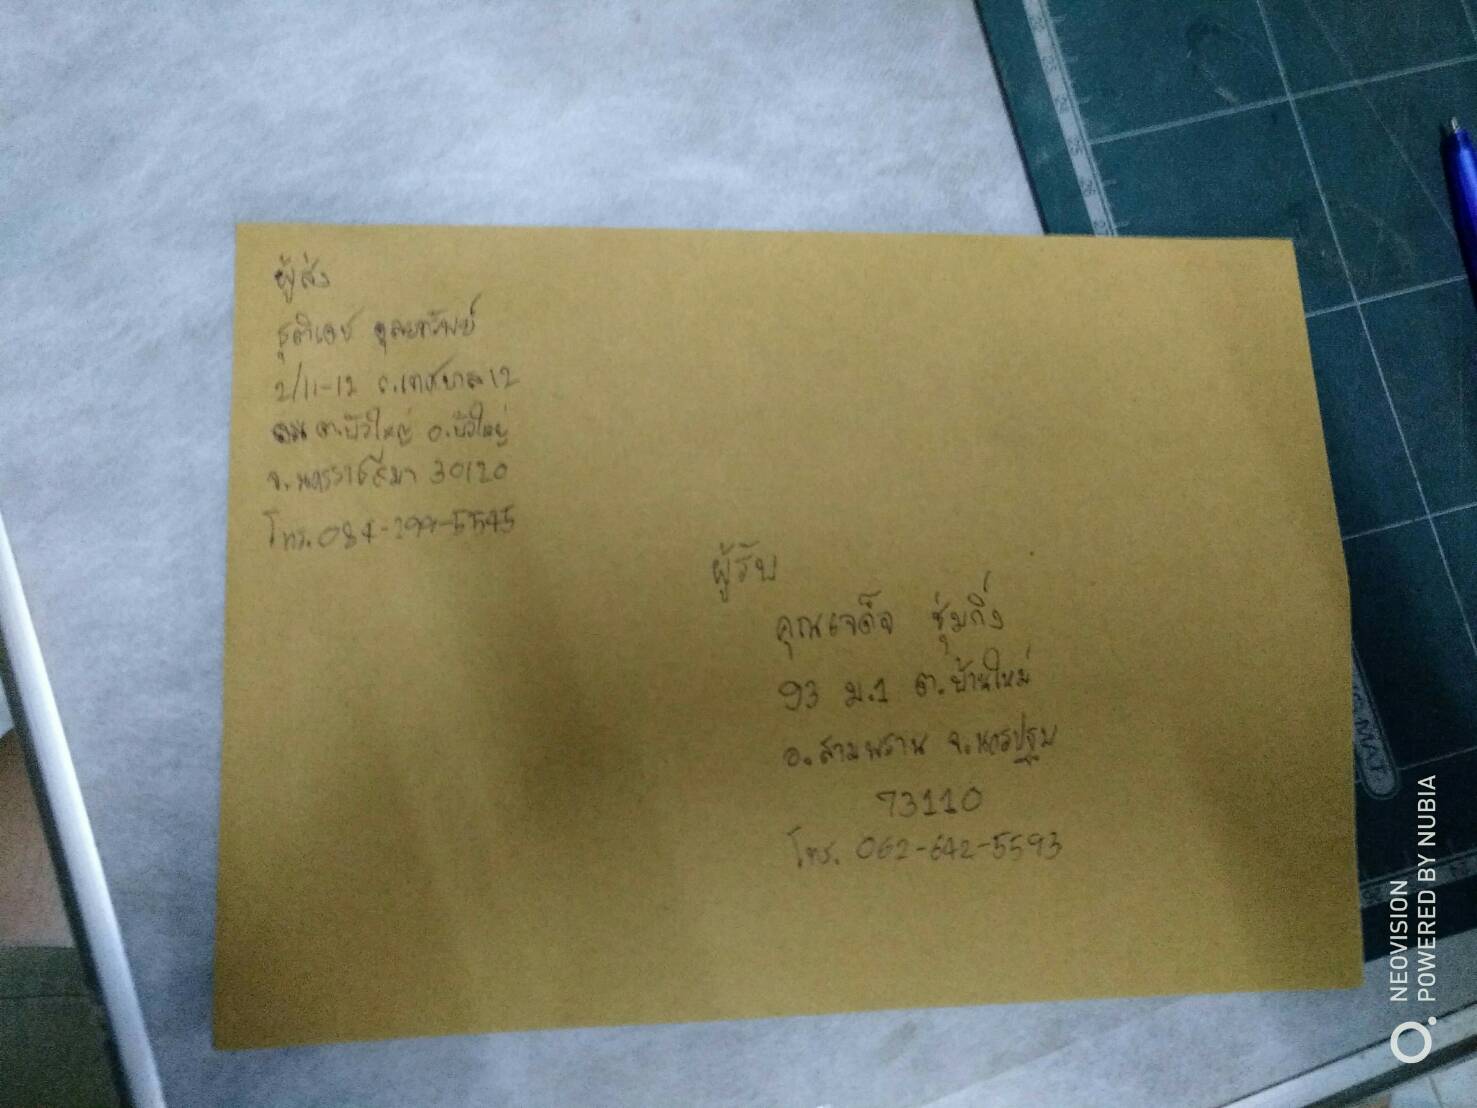 ผู้ส่ง
2/11-12 ถ.เทศบาล 12
ต.บัวใหญ่ อ.บัวใหญ่
จ.นครราชสีมา 30120
โทร. 084-299-5545
ผู้รับ
คุณเจด็จ ชุ่มกิ่ง
93 ม.1 ต.บ้านใหม่
อ.สามพราน จ.นครปฐม
73110
โทร. 062-642-5593
NEOVISION
POWERED BY NUBIA